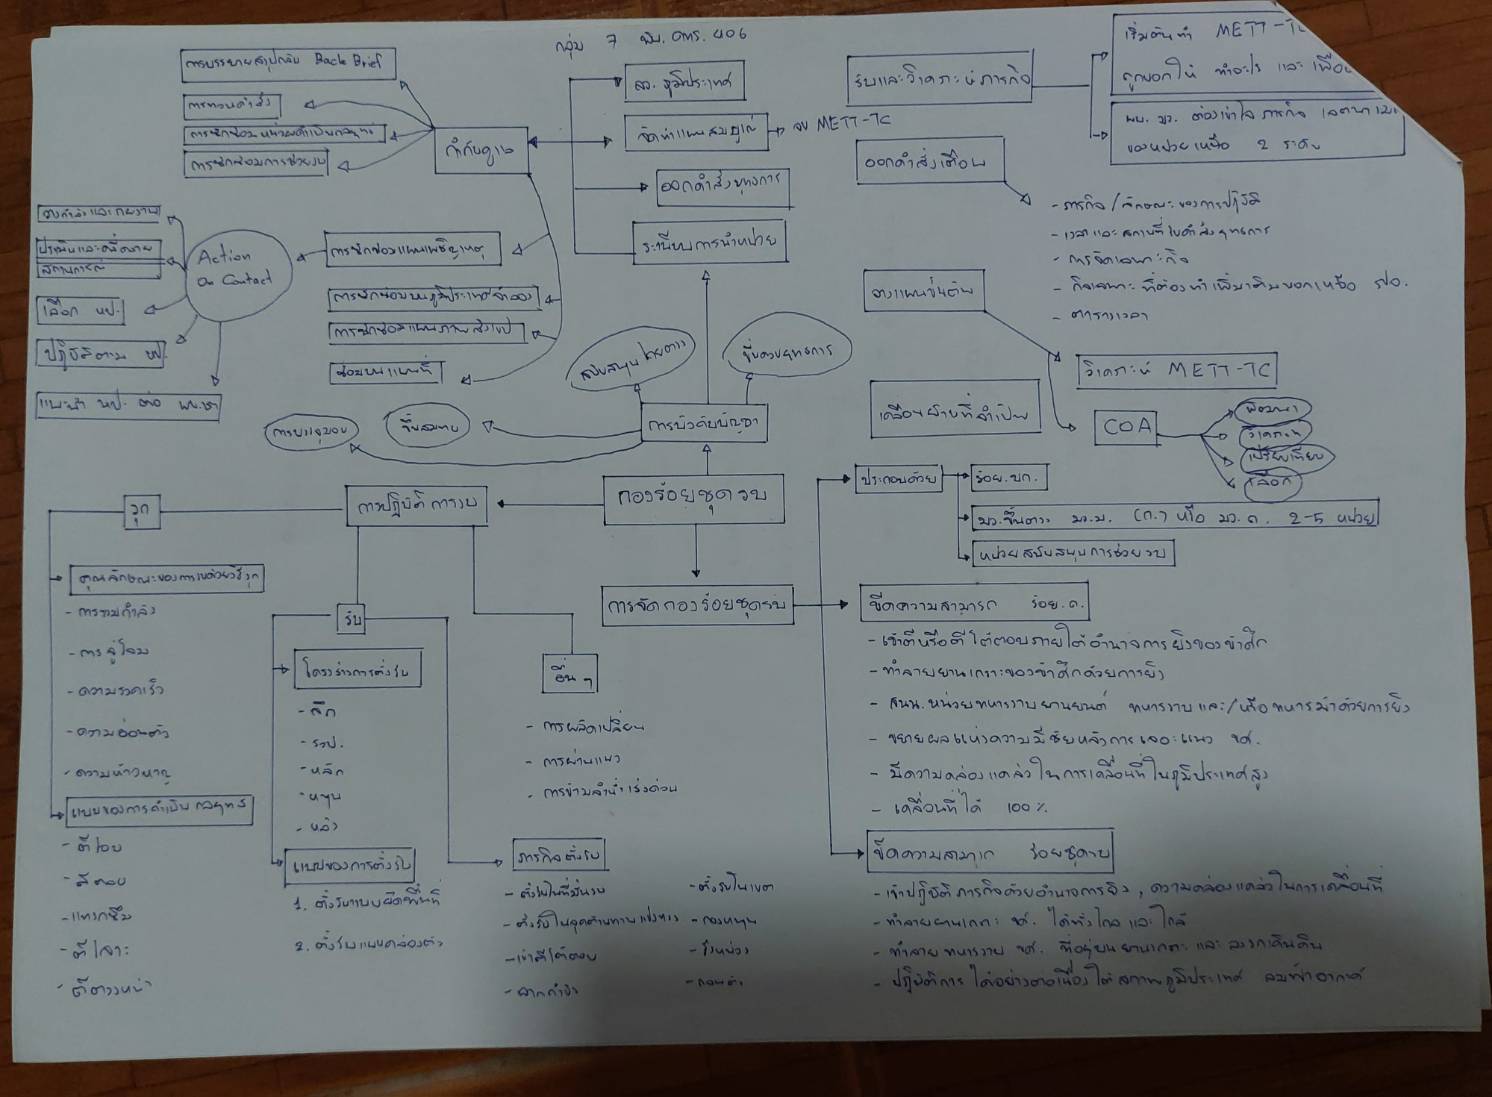 กลุ่ม 7
การบรรยายสรุปกลับ Back Brief
การทวนคำสั่ง
การซักซ้อมการช่วยรบ
กำกับดูแล
ลว. ภูมิประเทศ
จัดทำแผนสมบูรณ์
จบ METT-TC
ออกคำสั่งยุทธการ
ระเบียบการนำหน่วย
รับและวิเคราะห์ภารกิจ
เริ่มต้นทำ METT-TC
ถูกบอกให้ ทำอะไร และ เพื่อ
ผบ. มว. ต้องเข้าใจ ภารกิจ เจตนา
ของหน่วยเหนือ 2 ระดับ
ออกคำสั่งเตือน
- ภารกิจ / ลักษณะของการปฏิบัติ
- เวลาและสถานที่ให้คำสั่งยุทธการ
- การจัดเฉพาะกิจ
- ตารางเวลา
วางแผนขั้นต้น
วิเคราะห์ METT-TC
COA
พัฒนา
วิเคราะห์
เปรียบเทียบ
เลือก
เคลื่อนย้ายที่จำเป็น
Action
On Contact
การซักซ้อมแผนเผชิญเหตุ
การซักซ้อมบนภูมิประเทศจำลอง
การซักซ้อมแผนภาพสังเขป
ซ้อมบนแผนที่
วางกำลังและรายงาน
ประเมินและคลี่คลาย
สถานการณ์
เลือก หป.
ปฏิบัติตาม หป.
แนะนำ หป. ต่อ ผบ.ชา
สนับสนุนโดยตรง
ขึ้นควบคุมทางยุทธการ
การบรรจุมอบ
ขึ้นสมทบ
การบังคับบัญชา
กองร้อยชุดรบ
การปฏิบัติการรบ
การจัดกองร้อยชุดรบ
ประกอบด้วย
ร้อย.บก.
มว.ขึ้นตรง มว.ม. (ก.) หรือ มว.ถ. 2-5 หน่วย
หน่วยสนับสนุนการช่วยรบ
ขีดความสามารถ ร้อย.ถ.
- เข้าตีหรือตีโต้ตอบภายใต้อำนาจการยิงของข้าศึก
- ทำลายยานเกราะของข้าศึกด้วยการยิง
- สนน.หน่วยทหารราบยานยนต์ ทหารราบและ/หรือทหารม้าด้วยการยิง
- ขยายผลแห่งความมีชัยหลังการเจาะแนว ขศ.
- มีความคล่องแคล่วในการเคลื่อนที่ในภูมิประเทศสูง
- เคลื่อนที่ได้ 100%
ขีดความสามารถ ร้อยชุดรบ
- เข้าปฏิบัติภารกิจด้วยอำนาจการยิง, ความคล่องแคล่วในการเคลื่อนที่
- ทำลายยานเกราะ ขศ. ได้ทั้งไกลและใกล้
- ทำลายทหารราบ ขศ. ที่อยู่บนยานเกราะ และ ลงรถเดินดิน
- ปฏิบัติการได้อย่างต่อเนื่องใต้สภาพภูมิประเทศ ลมฟ้าอากาศ
รุก
คุณลักษณะของการรบด้วยวิธีรุก
- การรวมกำลัง
- การจู่โจม
- ความรวดเร็ว
- ความอ่อนตัว
- ความห้าวหาญ
แบบของการดำเนินกลยุทธ์
- ตีโอบ
- ตีตลบ
- แทรกซึม
- ตีเจาะ
- ตีตรงหน้า
รับ
โครงร่างการตั้งรับ
- ลึก
- รวป.
- หลัก
- หนุน
- หลัง
แบบของการตั้งรับ
1. ตั้งรับแบบยึดพื้นที่
2. ตั้งรับแบบคล่องตัว
อื่น ๆ
- การผลัดเปลี่ยน
- การผ่านแนว
- การข้ามลำน้ำเร่งด่วน
ภารกิจตั้งรับ
- ตั้งรับในที่มั่นรบ
- ตั้งรับในเขต
- ตั้งรับในจุดต้านทานแข็งแรง
- กองหนุน
- เข้าตีโต้ตอบ
- รั้งหน่วง
- ฉากกำบัง